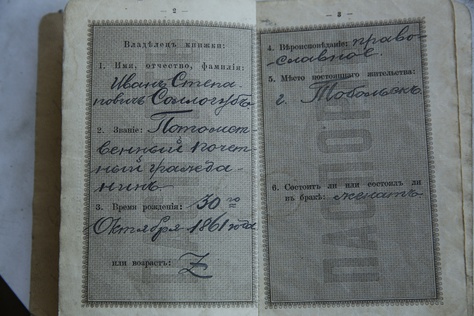 — 2 —
Владѣлецъ книжки:
1. Имя, отчество, фамилія:
Иванъ Степа-
новичъ Соллогубъ
2. Званіе: Потомст-
венный почет-
ный гражда-
нинъ
3. Время рожденія: 30 го
Октября 1861 года
или возрастъ: Z
— 3 —
4. Вѣроисповѣданіе: право-
славное
5. Мѣсто постояннаго жительства:
г. Тобольскъ
6. Состоитъ ли или состоялъ ли
въ бракѣ: женатъ
ПАСПОР